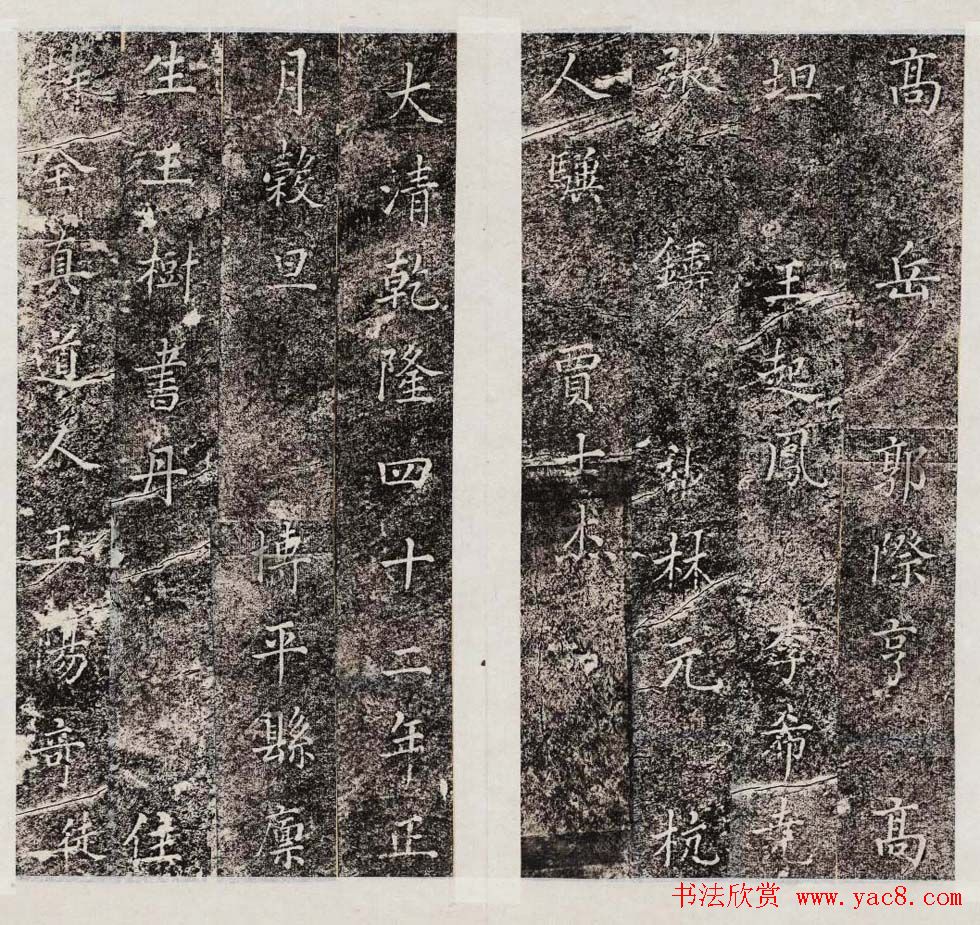 高岳 郭際亨 高
坦 王起鳳 李希堯
張鑄 林元 杭
人驥 賈士杰
大清乾隆四十二年正
月穀旦 博平縣廩
生王樹書丹 住
持全真道人王陽奇徒
书法欣赏 www.yac8.com